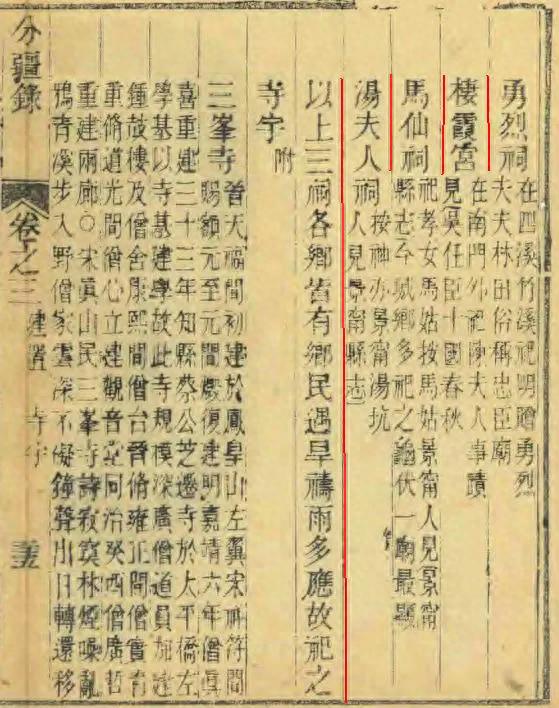 勇烈祠 在四溪竹溪祀明贈勇烈
大夫林田俗稱忠臣廟
棲霞宮 在南門外祀陳夫人事蹟
見吳任臣十國春秋
馬仙祠 祀孝女馬姑按馬姑景甯人見景甯
縣志今城鄉多祀之龜伏一廟最顯
湯夫人祠 按神亦景甯湯坑
人見景甯縣志
以上三祠各鄉皆有鄉民遇旱禱雨多應故祀之
寺宇 附
三峯寺 晉天福間初建於鳳皇山左翼宋祥符間
賜額元至元間燬復建明嘉靖六年僧真
喜重建三十三年知縣蔡公芝遷寺於太平橋左
學基以寺基建學故此寺規模深廣僧道員加建
鐘鼓樓及僧舍康熙間僧台晉脩雍正間僧實育
重脩道光間僧心立建觀音堂同治癸酉僧廣哲
重建兩廊○宋真山民三峯寺詩寂寞林煙噪亂
鴉青溪步入野僧家雲深不礙鐘聲出日轉還移
分疆錄 卷之三 建置 寺宇